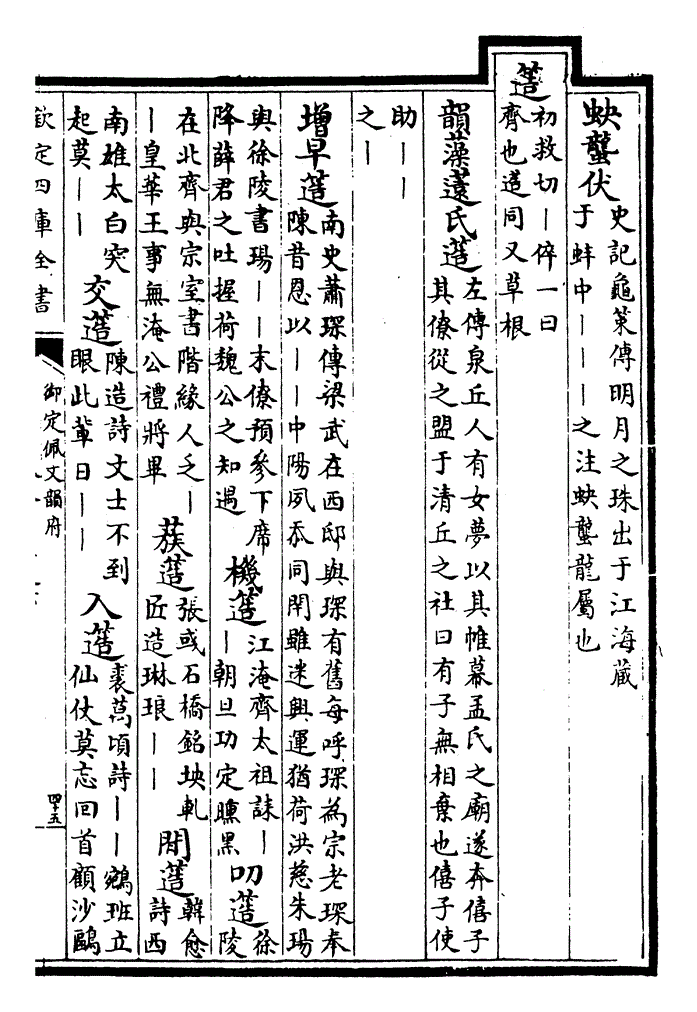 蚗蠪伏史記龜䇿傳明月之珠出于江海藏
于蚌中｜｜｜之注蚗蠪龍屬也
簉
初救切｜倅一曰
齊也簉同又草根
韻藻薳氏簉左傳泉丘人有女夢以其帷幕孟氏之廟遂奔僖子
其僚從之盟于清丘之社曰有子無相棄也僖子使
助｜｜
之｜
增早簉南史蕭琛傳梁武在西邸與琛有舊每呼琛為宗老琛奉
陳昔恩以｜｜中陽夙忝同閈雖迷興運猶荷洪慈朱瑒
與徐陵書瑒｜｜末僚預參下席
降薛君之吐握荷魏公之知遇
機簉江淹齊太祖誄｜
｜朝旦功定曛黑
叨簉徐陵
在北齊與宗室書階緣人乏｜
｜皇華王事無淹公禮將畢
蔟簉張或石橋銘坱軋
匠造琳琅｜｜
閒簉韓愈
詩西
南雄太白突
起莫｜｜
交簉陳造詩文士不到
眼此軰日｜｜
入簉裘萬頃詩｜｜鵷班立
仙仗莫忘回首顧沙鷗
欽定四庫全書
御定佩文韻府
四十五